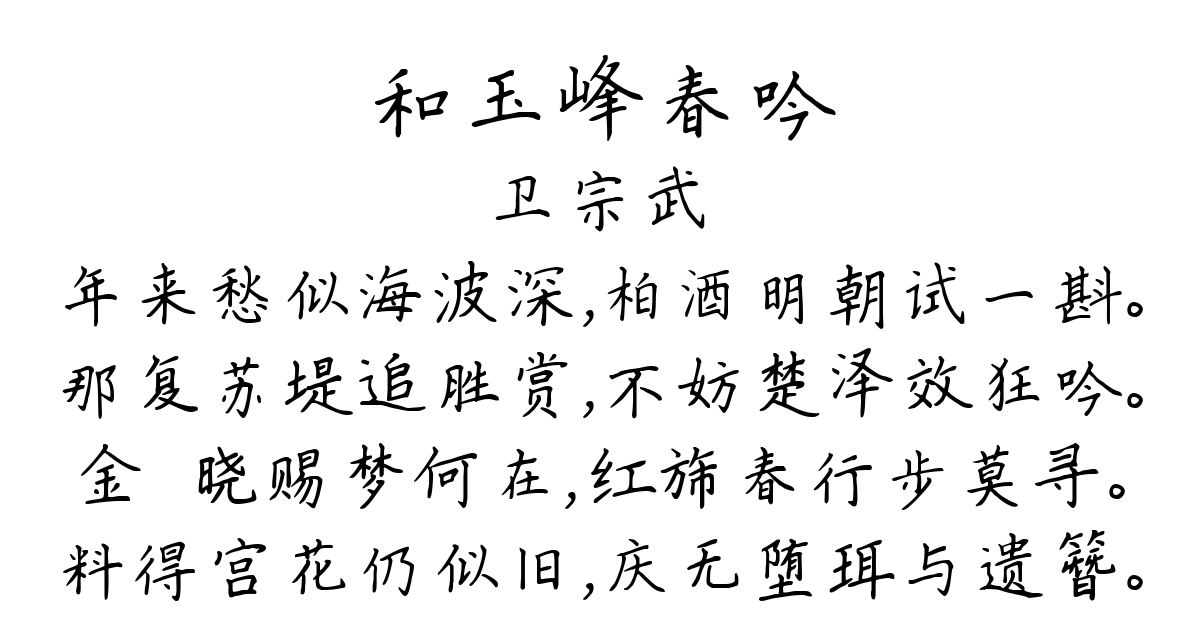 和玉峰春吟
卫宗武
年来愁似海波深,柏酒明朝试一斟。
那复苏堤追胜赏,不妨楚泽效狂吟。
金 晓赐梦何在,红旆春行步莫寻。
料得宫花仍似旧,庆无堕珥与遗簪。